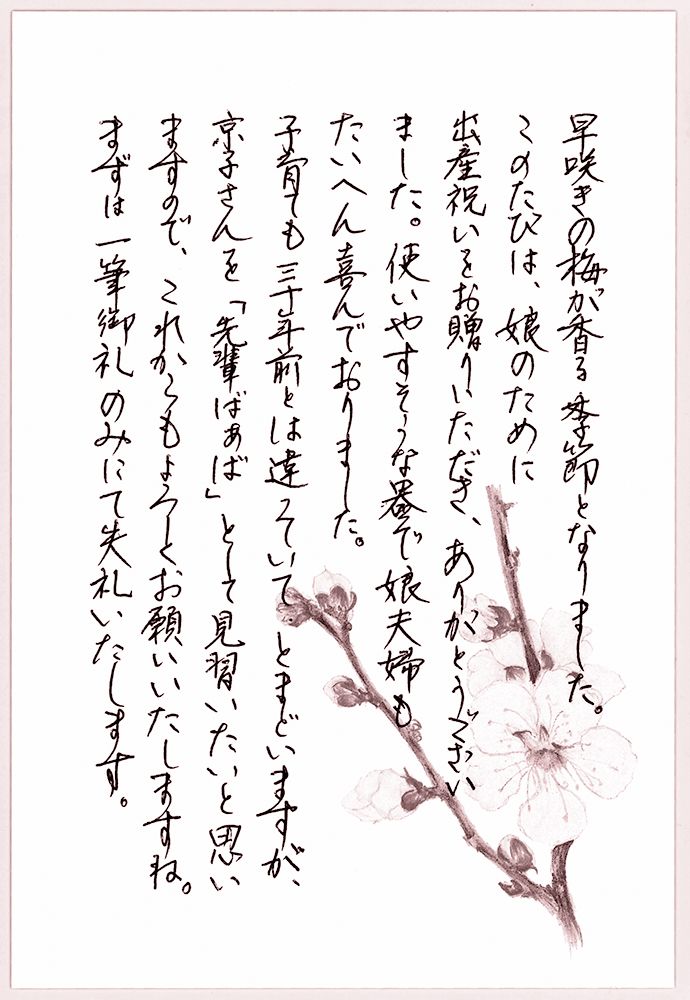 早咲きの梅が香る季節となりました。
このたびは、娘のために
出産祝いをお贈りいただき、ありがとうござい
ました。使いやすそうな器で娘夫婦も
たいへん喜んでおりました。
子育ても三十年前とは違っていてとまどいますが、
京子さんを「先輩ばぁば」として見習いたいと思い
ますので、これからもよろしくお願いいたしますね。
まずは一筆御礼のみにて失礼いたします。